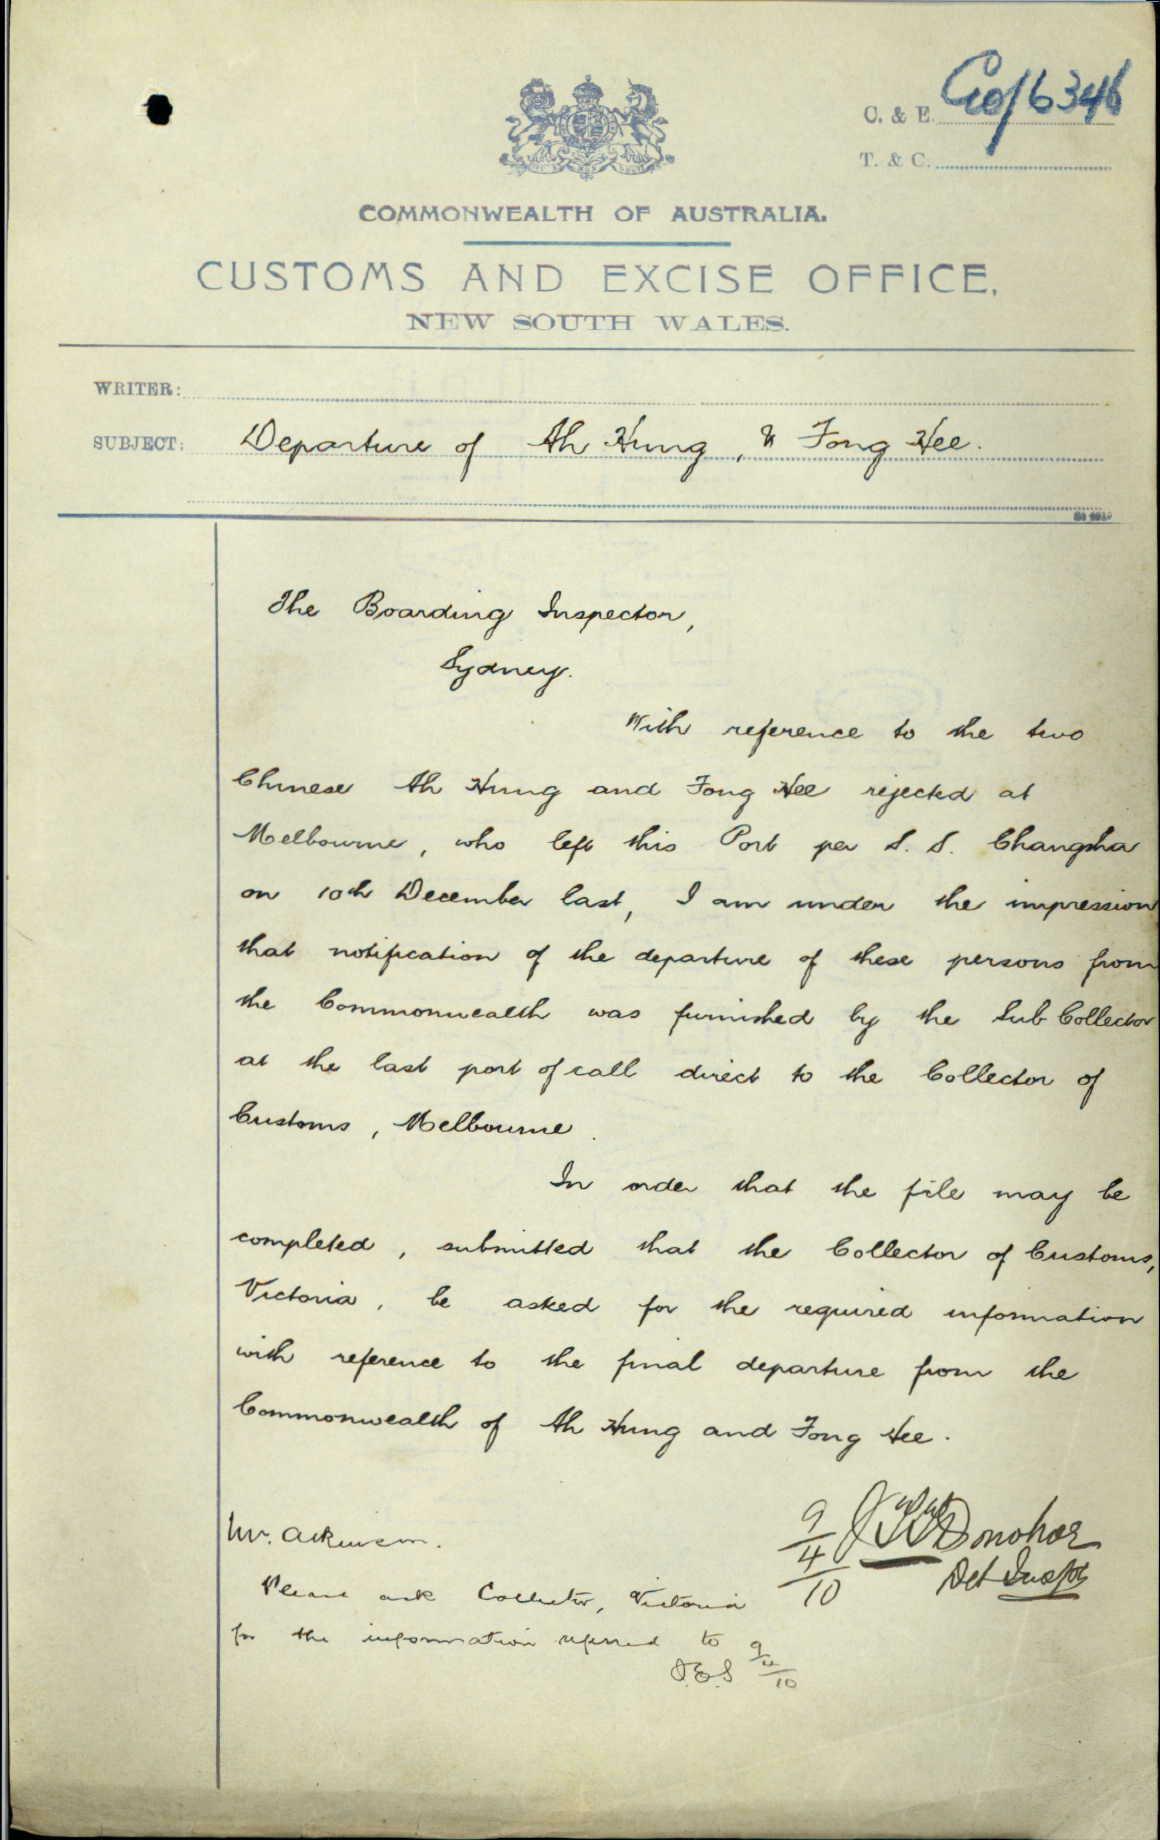 C. & E. G10/6346
T. & C.
COMMONWEALTH OF AUSTRALIA.
CUSTOMS AND EXCISE OFFICE,
NEW SOUTH WALES.
WRITER:
SUBJECT: Departure of Ah Hung, & Fong Hee.
The Boarding Inspector,
Sydney.
With reference to the two
Chinese Ah Hung and Fong Hee rejected at
Melbourne, who left this Port per S. S. Changsha
on 10th December last, I am under the impression
that notification of the departure of these persons from
the Commonwealth was furnished by the Sub Collector
at the last port of call direct to the Collector of
Customs, Melbourne.
In order that the file may be
completed, submitted that the Collector of Customs,
Victoria, be asked for the required information
with reference to the final departure from the
Commonwealth of Ah Hung and Fong Hee.
9/4/10 Donohoe
Det Inspr
Mr. Atkinson.
Please ask Collector, Victoria
for the information referred to 9/4/10